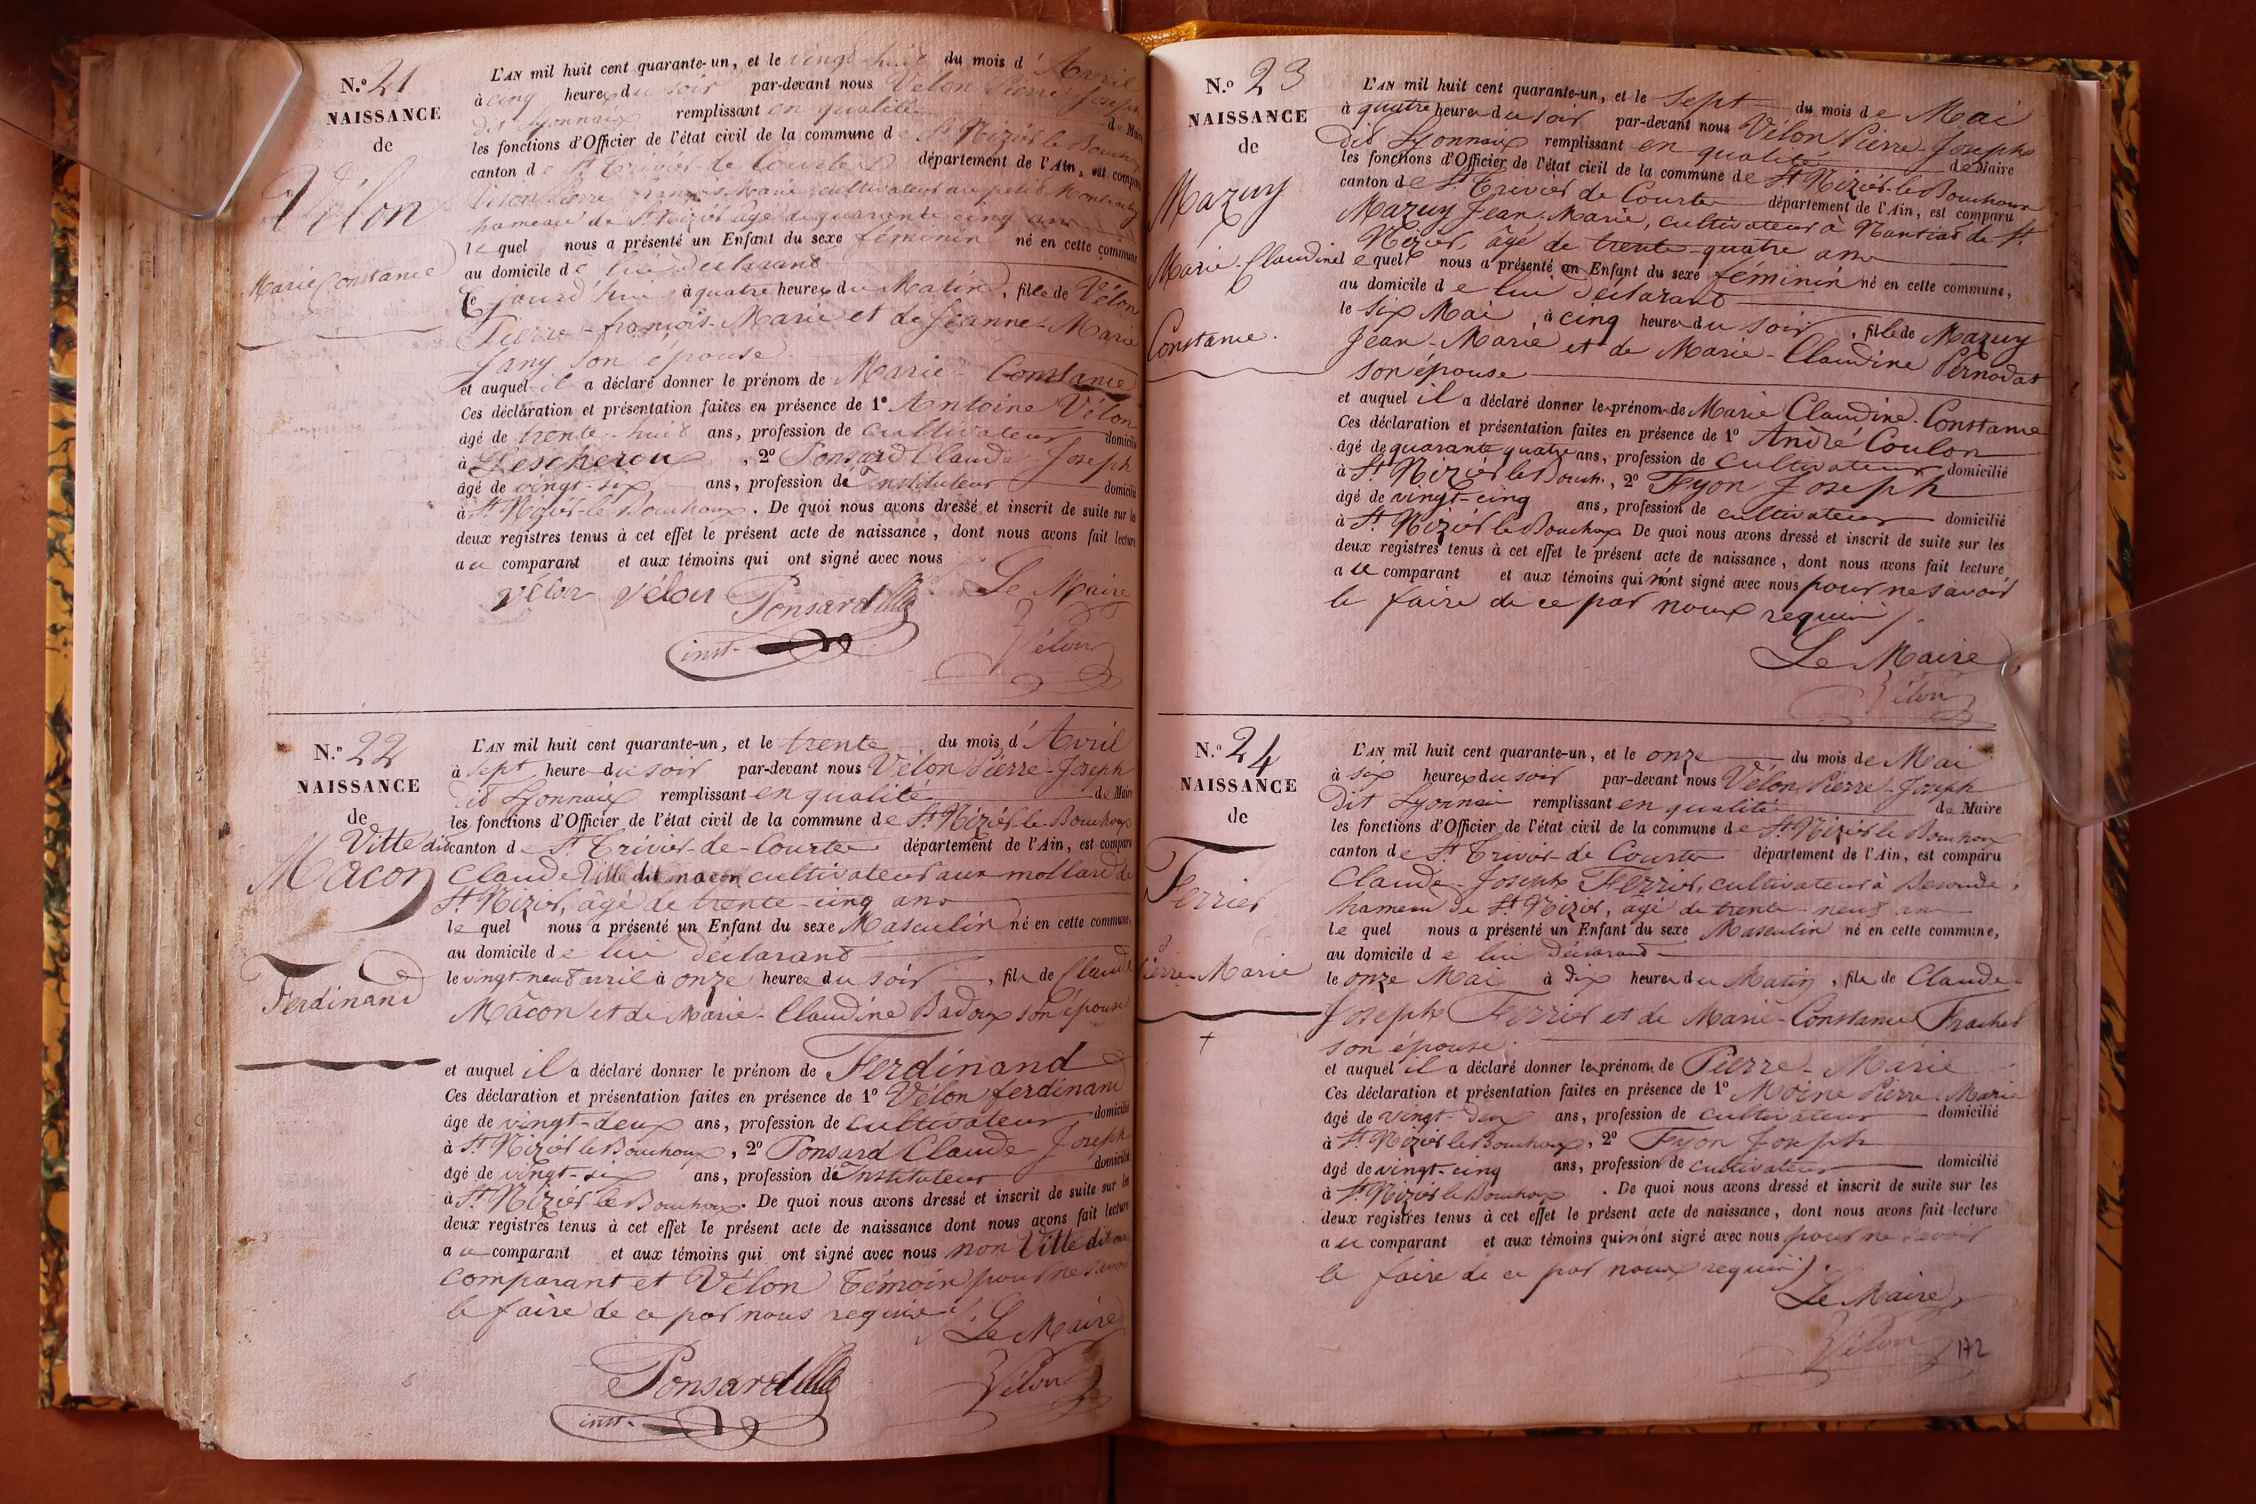 N.° 21
NAISSANCE
de
Vélon
Marie Constance
L'AN mil huit cent quarante-un, et le vingt-huit du mois d'Avril
à cinq heures du soir par-devant nous Vélon Pierre Joseph
dit Lyonnais remplissant en qualité de Maire
les fonctions d'Officier de l'état civil de la commune de St Nizier le Bouchoux
canton de St Trivier de Courtes département de l'Ain, est comparu
Vélon Pierre françois Marie, cultivateur au petit
hameau de St Nizier âgé de quarante cinq ans
lequel nous a présenté un Enfant du sexe féminin né en cette commune
au domicile de lui déclarant
Ce jourd'hui, à quatre heures du Matin, fille de Vélon
Pierre-françois-Marie et de Jeanne-Marie
Jany son épouse
et auquel il a déclaré donner le prénom de Marie-Constance
Ces déclaration et présentation faites en présence de 1° Antoine Vélon
âgé de trente-huit ans, profession de cultivateur domicilié
à Lescheroux, 2° Ponsard Claude Joseph
âgé de vingt-six ans, profession de Instituteur domicilié
à St Nizier-le Bouchoux. De quoi nous avons dressé et inscrit de suite sur les
deux registres tenus à cet effet le présent acte de naissance, dont nous avons fait lecture
au comparant et aux témoins qui ont signé avec nous
Vélon Vélon Ponsard Le Maire
inst. Vélon
N.° 22
NAISSANCE
de
Ville dit
Mâcon
Ferdinand
L'AN mil huit cent quarante-un, et le trente du mois d'Avril
à sept heures du soir par-devant nous Vélon Pierre-Joseph
dit Lyonnais remplissant en qualité de Maire
les fonctions d'Officier de l'état civil de la commune de St Nizier le Bouchoux
canton de St Trivier-de-Courtes département de l'Ain, est comparu
Claude Ville dit macon cultivateur aux mollard de
St Nizier, âgé de trente-cinq ans
lequel nous a présenté un Enfant du sexe Masculin né en cette commune,
au domicile de lui déclarant
le vingt-neuf avril à onze heures du soir, fils de Claude
Mâcon et de Marie-Claudine Badoux son épouse
et auquel il a déclaré donner le prénom de Ferdinand
Ces déclaration et présentation faites en présence de 1° Vélon ferdinand
âge de vingt-deux ans, profession de cultivateur domicilié
à St Nizier le Bouchoux, 2° Ponsard Claude Joseph
âgé de vingt-six ans, profession de Instituteur domicilié
à St Nizier le Bouchoux. De quoi nous avons dressé et inscrit de suite sur les
deux registres tenus à cet effet le présent acte de naissance dont nous avons fait lecture
au comparant et aux témoins qui ont signé avec nous non Ville dit
comparant et Vélon témoin pour ne savoir
le faire de ce par nous requis
Le Maire
Ponsard Vélon
inst.
N.° 23
NAISSANCE
de
Mazuy
Marie-Claudine
Constance.
L'AN mil huit cent quarante-un, et le sept du mois de Mai
à quatre heures du soir par-devant nous Vélon Pierre Joseph
dit Lyonnais remplissant en qualité de Maire
les fonctions d'Officier de l'état civil de la commune de St Nizier-le Bouchoux
canton de St Trivier de Courtes département de l'Ain, est comparu
Mazuy Jean-Marie, cultivateur à de St
Nizier, âgé de trente-quatre ans
lequel nous a présenté un Enfant du sexe féminin né en cette commune,
au domicile de lui déclarant
le six Mai, à cinq heures du soir, fille de Mazuy
Jean-Marie et de Marie-Claudine Pernodat
son épouse
et auquel il a déclaré donner les prénoms de Marie Claudine-Constance
Ces déclaration et présentation faites en présence de 1° André Coulon
âgé de quarante quatre ans, profession de cultivateur domicilié
à St Nizier le Bouch., 2° Fyon Joseph
âgé de vingt-cinq ans, profession de cultivateur domicilié
à St Nizier le Bouchoux De quoi nous avons dressé et inscrit de suite sur les
deux registres tenus à cet effet le présent acte de naissance, dont nous avons fait lecture
au comparant et aux témoins qui n'ont signé avec nous pour ne savoir
le faire de ce par nous requis.
Le Maire
Vélon
N.° 24
NAISSANCE
de
Ferrier
Pierre-Marie
L'AN mil huit cent quarante-un, et le onze du mois de Mai
à six heures du soir par-devant nous Vélon Pierre-Joseph
dit Lyonnais remplissant en qualité de Maire
les fonctions d'Officier de l'état civil de la commune de St Nizier le Bouchoux
canton de St Trivier de Courtes département de l'Ain, est comparu
Claude-Joseph Ferrier, cultivateur à
hameau de St Nizier, âgé de trente-neuf ans
lequel nous a présenté un Enfant du sexe Masculin né en cette commune,
au domicile de lui déclarant
le onze Mai à dix heures du Matin, fils de Claude
Joseph Ferrier et de Marie-Constance Frachet
son épouse.
et auquel il a déclaré donner les prénoms de Pierre-Marie
Ces déclaration et présentation faites en présence de 1° Moine Pierre Marie
âgé de vingt-deux ans, profession de cultivateur domicilié
à St Nizier le Bouchoux, 2° Fyon Joseph
âgé de vingt-cinq ans, profession de cultivateur domicilié
à St Nizier le Bouchoux. De quoi nous avons dressé et inscrit de suite sur les
deux registres tenus à cet effet le présent acte de naissance, dont nous avons fait lecture
au comparant et aux témoins qui n'ont signé avec nous pour ne savoir
le faire de ce par nous requis.
Le Maire
Vélon
172